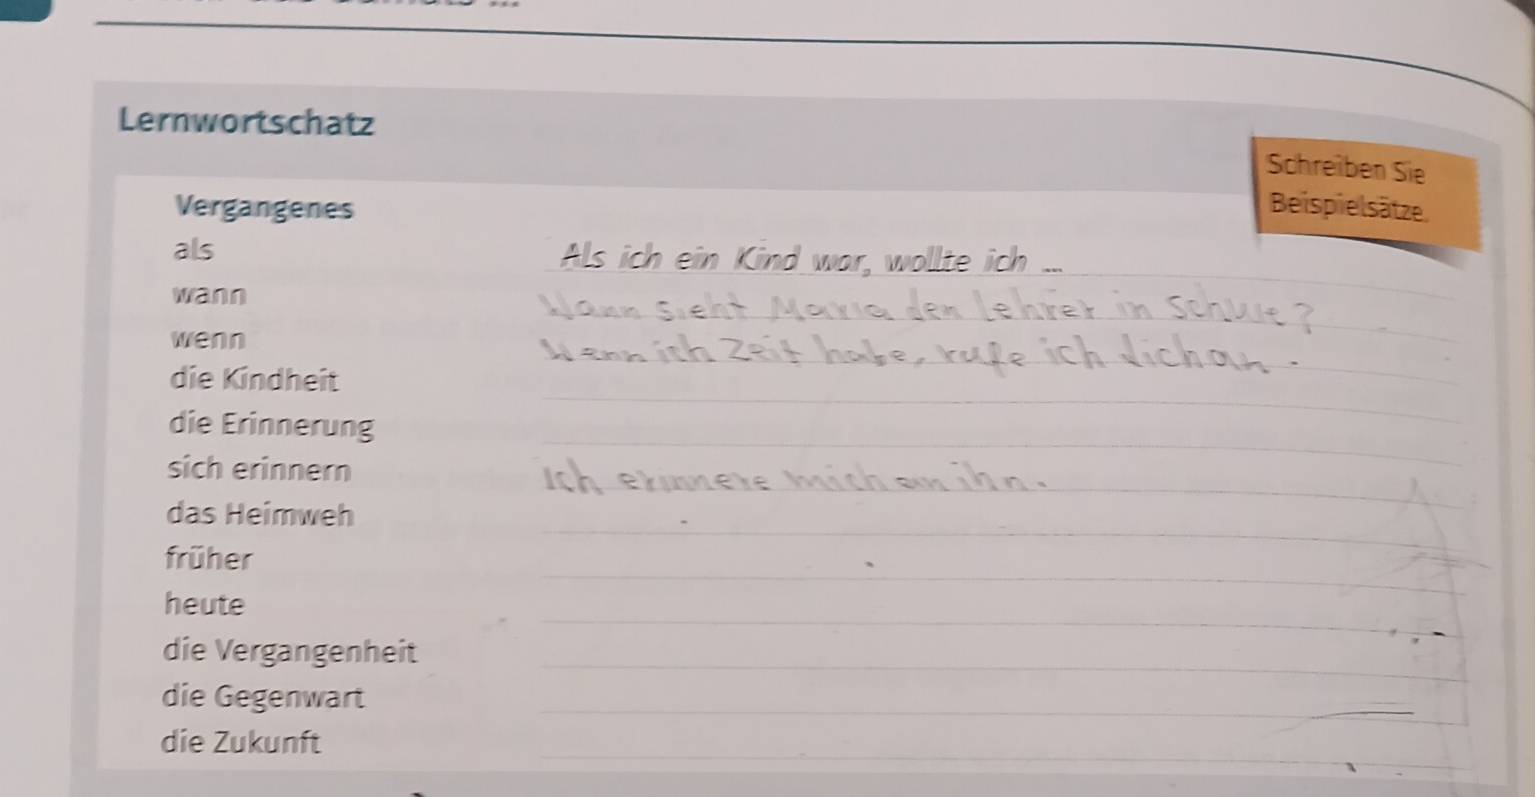 Lernwortschatz
Schreiben Sie
Beispielsätze.
Vergangenes
als
Als ich ein Kind war, wollte ich ...
wann
Wann sieht Maria den Lehrer in Schule?
wenn
Wenn ich Zeit habe, rufe ich dich an.
die Kindheit
die Erinnerung
sich erinnern
Ich erinnere mich an ihn.
das Heimweh
früher
heute
die Vergangenheit
die Gegenwart
die Zukunft